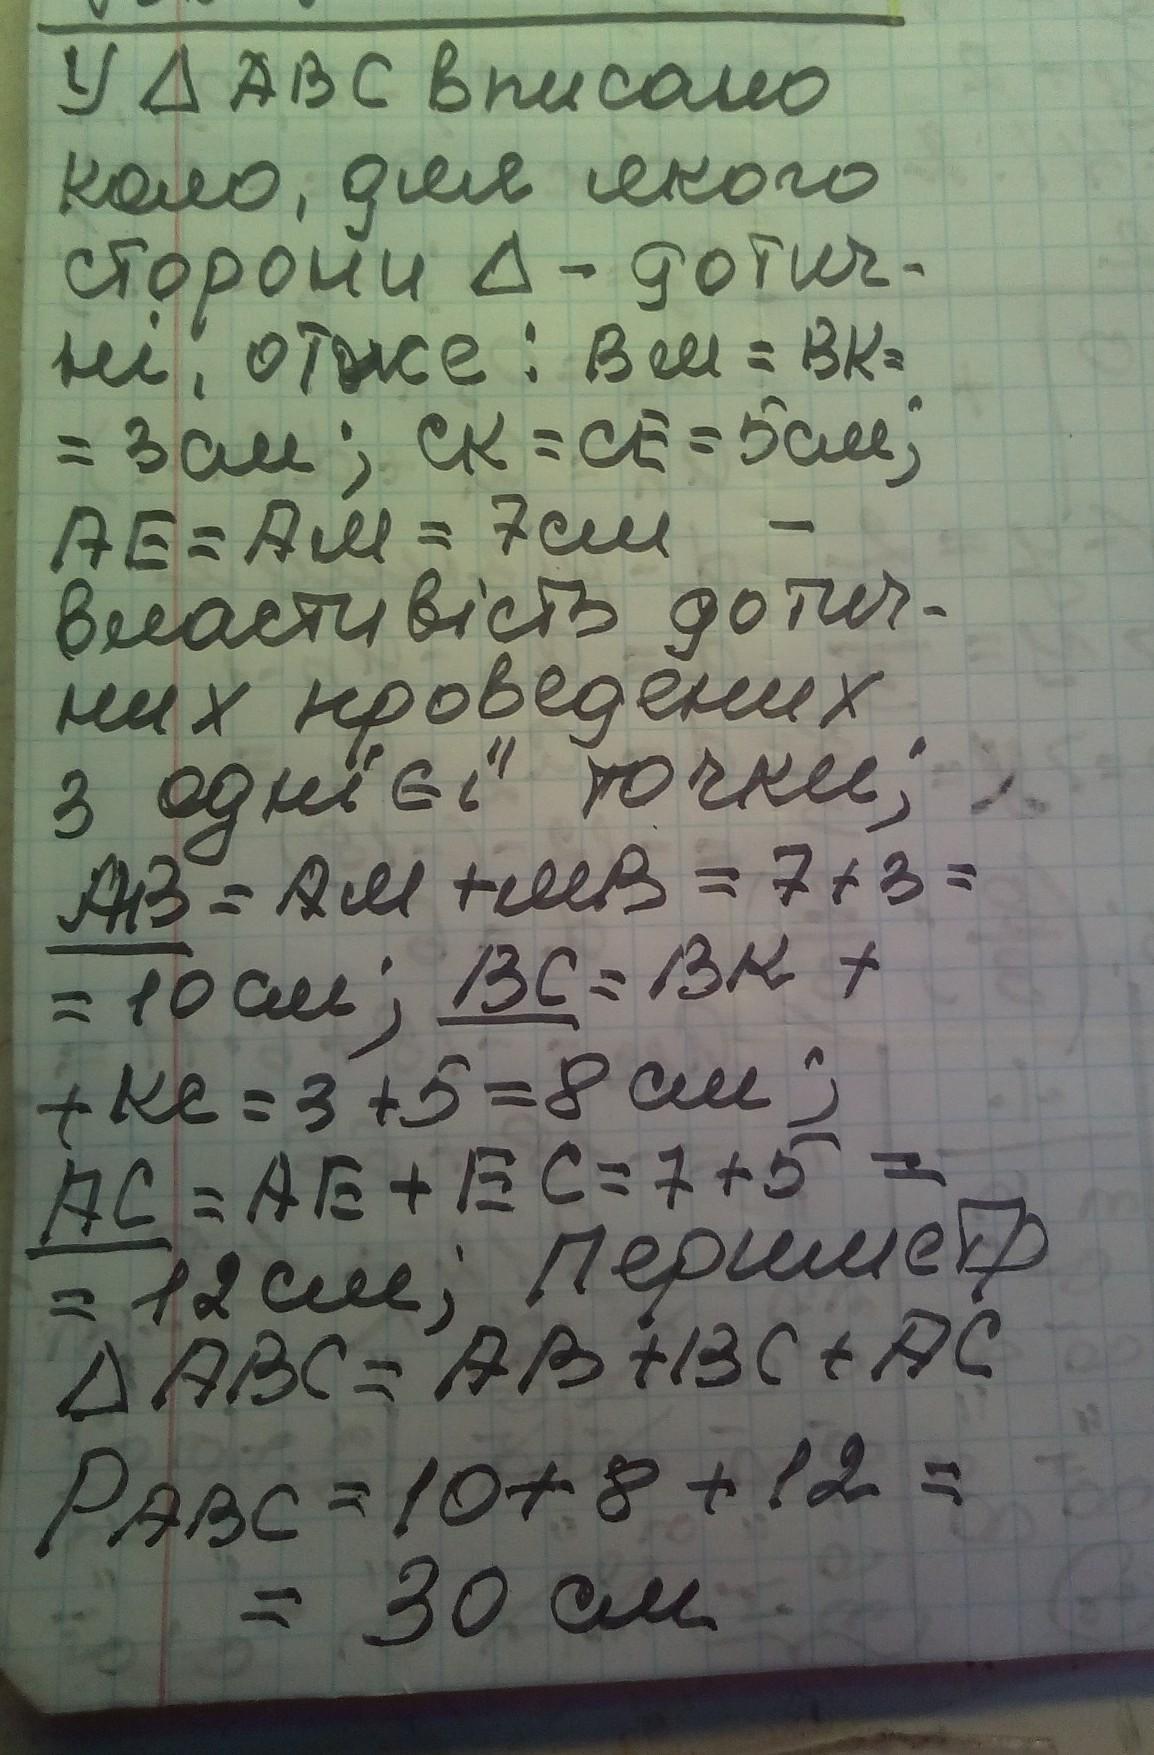 У Δ ABC вписано
коло, для якого
сторони Δ - дотич-
ні, отже: BM = BK=
= 3см; CK = CE = 5см;
AE = AM = 7см -
властивість дотич-
них проведених
з однієї точки;
AB = AM + MB = 7+3=
= 10 см; BC = BK +
+ KC = 3 + 5 = 8 см;
AC = AE + EC = 7+5 =
= 12 см; Периметр
Δ ABC = AB + BC + AC
PABC = 10 + 8 + 12 =
= 30 см